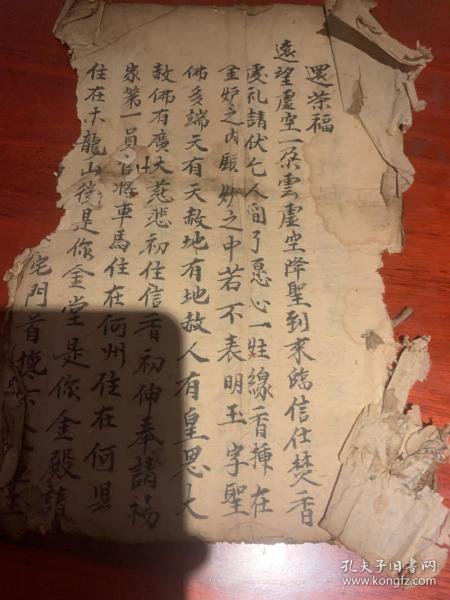 還荣福
遠望虛空一朶雲虛空降聖到來臨信仕焚香
虔礼請伏乞人間了愿心一炷線香揷在
金炉之內銀炉之中若不表明玉字聖
佛多端天有天赦地有地赦人有皇恩大
赦佛有廣大慈悲初住信香初伸奉請福
家第一員官將車馬住在何州住在何县
住在木龍山後是你金堂是你金殿請
宅門首
孔夫子旧书网
www.kongfz.com